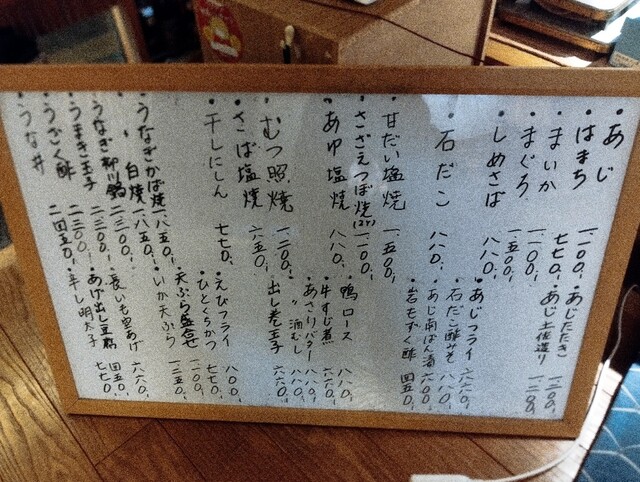 ・あじ 一.二〇〇、
・はまち 七七〇、
・まいか 一.一〇〇、
・まぐろ 一.五〇〇、
・しめさば 八八〇、
・石だこ 八八〇、
・甘だい塩焼 一.五〇〇、
・さざえつぼ焼(2ケ) 一.一〇〇、
・あゆ塩焼 八八〇、
・むつ照焼 一.二〇〇、
・さば塩焼 六五〇、
・干しにしん 七七〇、
・うなぎかば焼 一.八五〇、
・〃 白焼 一.八五〇、
・うなぎ柳川鍋 一.三〇〇、
・うまき玉子 一.三〇〇、
・うざく酢 二.三〇〇、
・うな丼 二.四五〇、
・あじたたき 一.二〇〇、
・あじ土佐造り 一.二〇〇、
・あじフライ 六六〇、
・石だこ酢みそ 八八〇、
・あじ南ばん漬 六〇〇、
・岩もずく酢 四五〇、
・鴨ロース 八八〇、
・牛すじ煮 六六〇、
・あさりバター 八八〇、
・〃 酒むし 八八〇、
・出し巻玉子 六六〇、
・えびフライ 八〇〇、
・ひとくちかつ 七七〇、
・天ぷら盛合せ 一.二〇〇、
・いか天ぷら 一.三五〇、
・長いも空あげ 六六〇、
・あげ出し豆腐 四五〇、
・辛し明太子 七七〇、